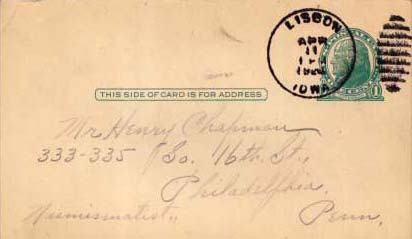 LISBON
APR
11
IOWA
THIS SIDE OF CARD IS FOR ADDRESS
Mr Henry Chapman
333-335 So. 16th St.,
Philadelphia,
Numismatist., Penn.